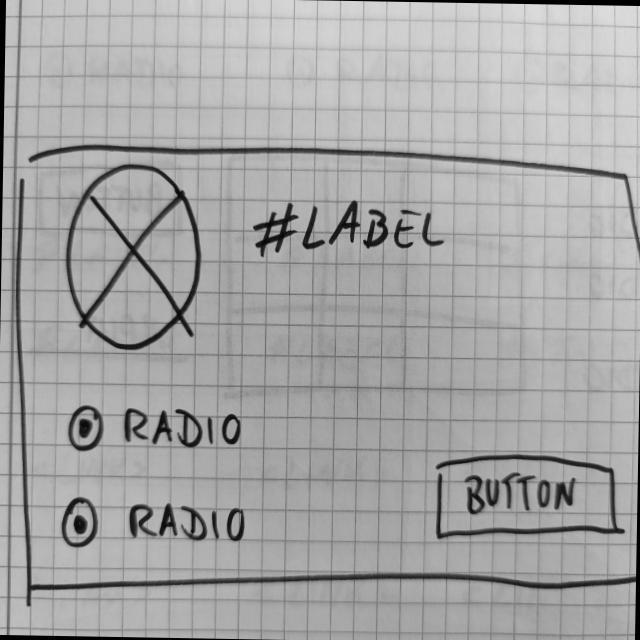 #LABEL
RADIO
RADIO
BUTTON